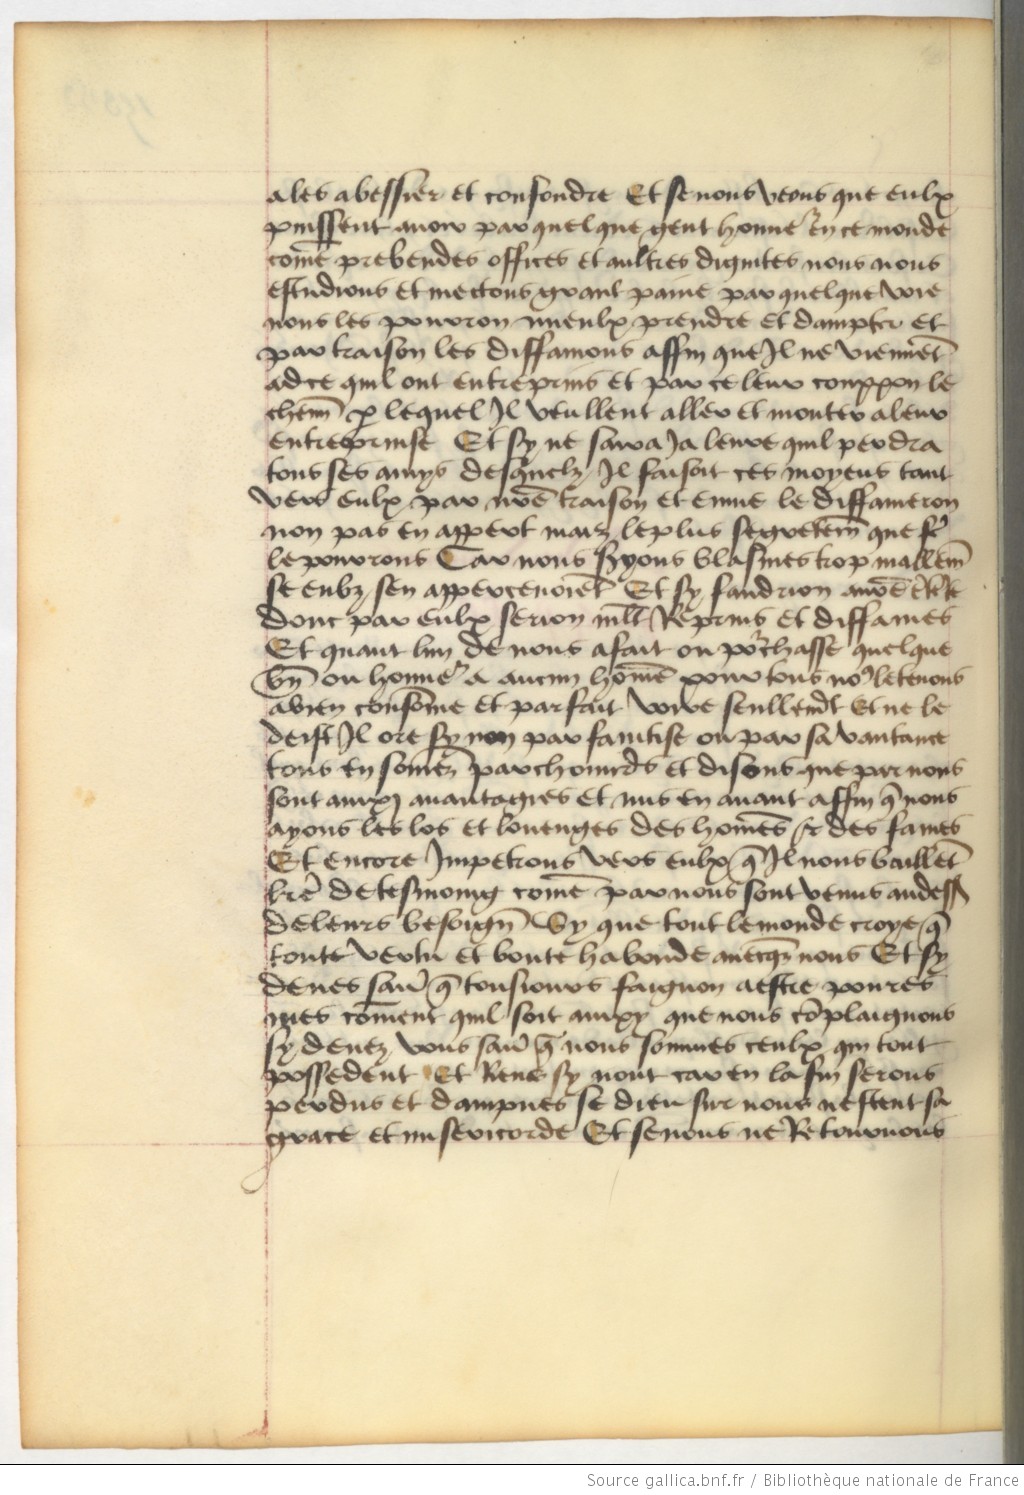 a les abessier et confondre Et se nous veons que eulx
puissent avoir par quelque gent honneʳ en ce monde
com̃e prebendes offices et aultres dignites nous nous
estudions et mectons grant paine par quelque voie
nous les pourron mieulx prendre et dampter et
par traison les diffamons affin que Il ne viennẽt
ad ce quil ont entreprins et par ce leur couppon le
chemĩ ꝑ lequel Il veullent aller et monter a leur
entreprinse Et sy ne saura Ja leure quil perdra
tous ses amys desquelz Il faisoit ces moyens tant
vers eulx par nr̃e traison et envie le diffameron
non pas en appert maiz le plus segretem̃ que
le pourrons Car nous serions blasmes trop mallem̃
se eulz sen appercevoiẽt Et sy faudrion
donc par eulx serion mlt̃ Reprins et diffames
Et quant lun de nous a fait ou porchasse quelque
bñ ou honneʳ a aucun hom̃e pour tous noꝰ le tenons
a bien consom̃e et parfait seullem̃t Et ne le
deist Il ore sy non par faintise ou par sa vantance
tous en som̃ez parchoniers et disons que par nous
sont auxy avantagies et mis en avant affin q̃ nous
ayons les los et louenges des hom̃es et des fames
Et encore Impetrons vers eulx q̃ Il nous baillẽt
lr̃e de tesmoing com̃e par nous sont venus au dessꝰ
de leurs besoignẽ Sy que tout le monde croye q̃
toute vertu et bonte habonde avecq̃z nous Et sy
deves savr̃ q̃ tousiours faignon a estre poures
mes com̃ent quil soit auxy que nous cõplaignons
sy devez vous savr̃ q̃ nous sommes ceulx qui tout
possedent Et Rens sy nont car en la fin serons
perdus et dampnes se dieu sur nous nestent sa
grace et misericorde Et se nous ne Retournons
Source gallica.bnf.fr / Bibliothèque nationale de France